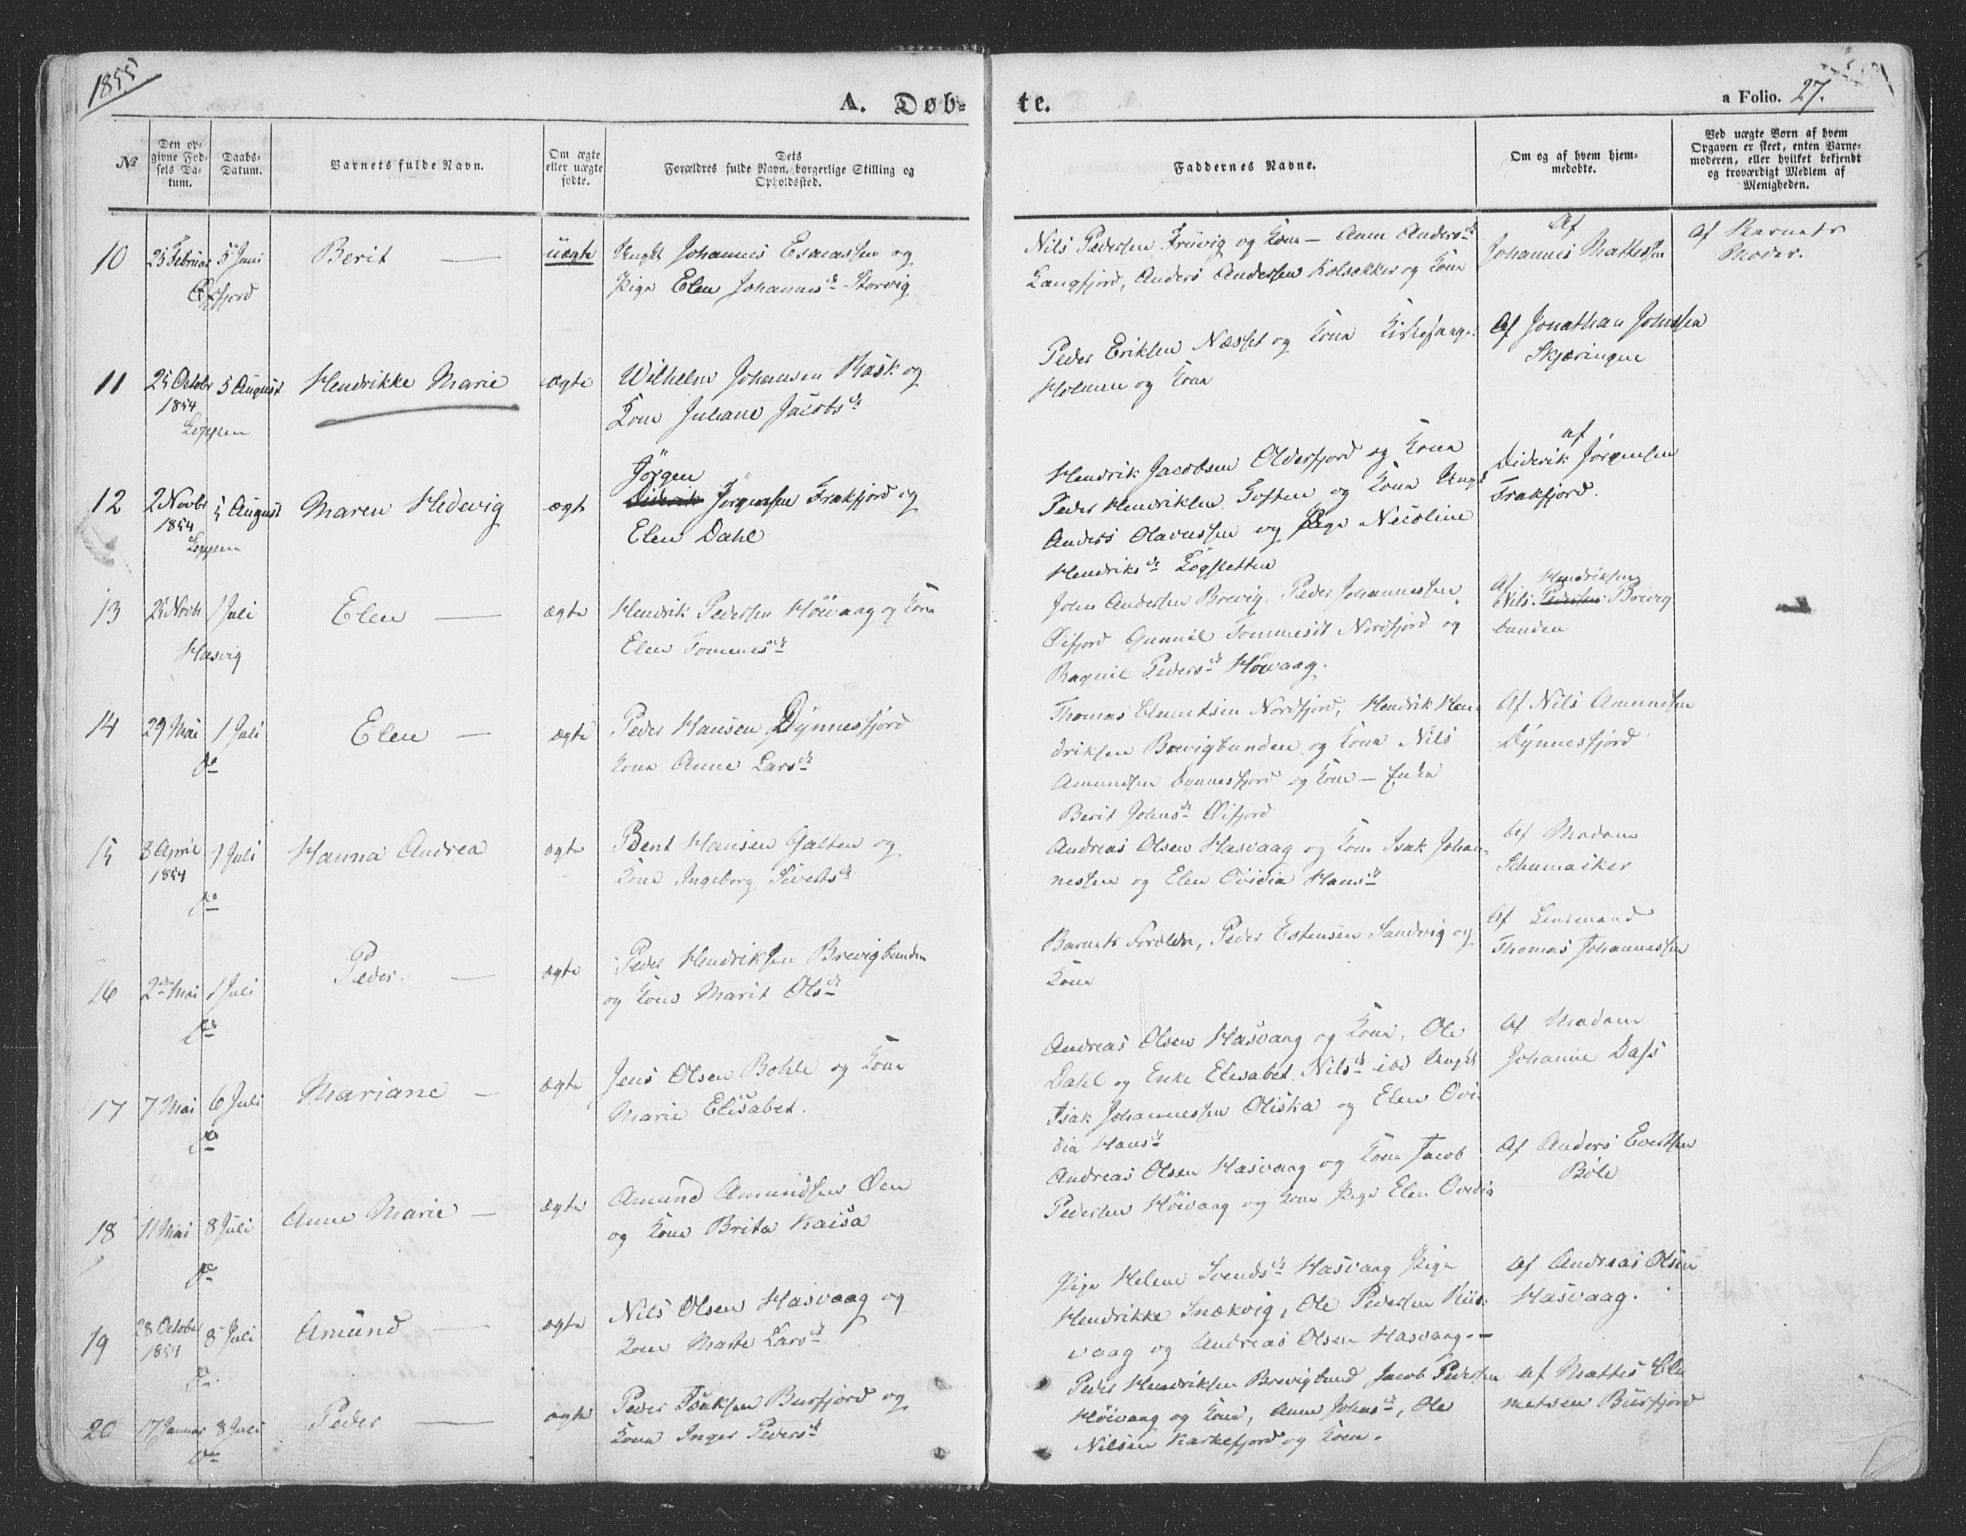 1855
A. Døb-
te.
a Folio. 27.
No
Den op-
givne Fød-
sels Da-
tum.
Daabs-
Datum.
Barnets fulde Navn.
Om ægte
eller uægte
fødte.
Dets
Forældres fulde Navn, borgerlige Stilling og
Opholdssted.
Faddernes Navne.
Om og af hvem hjem-
medøbte.
Ved uægte Børn af hvem
Opgaven er skeet, enten Barne-
moderen, eller hvilket bekjendt
og troværdigt Medlem af
Menigheden.
10
25 Februar
5 Juni
Øxfjord
Berit
uægte
Ungk Johannes Esaiassen og
Pige Elen Johannesdr Storvig
Nils Pedersen Fruvig og Kone - Anne Andersdr
Langfjord, Anders Andersen Kolsakker og Kone
Af
Johannes Mathesen
Af Barnets
Moder.
11
25 Octobr
1854
5 August
Loppen
Hendrikke Marie
ægte
Wilhelm Johansen Rask og
Kone Juliane Jacobsdr
Peder Eriksen Næsset og Kone
Holmen og Kone
Af Jonathan Johnsen
Skjæringen
12
2 Novbr
1854
5 August
Loppen
Maren Hedevig
ægte
Jörgen
Diderik Jørgensen Frakfjord og
Elen Dahl
Hendrik Jacobsen Olderfjord og Kone
Peder Hendriksen Goften og Kone Ungk
Anders Olavessen og Pige Nicoline
Hendriksdr Løgsletten
af
Diderik Jørgensen
Frakfjord.
13
25 Novbr
1 Juli
Hasvig
Elen
ægte
Hendrik Pedersen Höivaag og Kone
Elen Tommesdr
John Andersen Brevig, Peder Johannessen
Øifjord Gunnil Tommesdr Nordfjord og
Ragnil Pedersdr Höivaag.
Af Hendriksen
Nils Pedersen Brevig
bunden
14
29 Mai
1 Juli
do
Elen
ægte
Peder Hansen Dynnesfjord
Kone Anne Larsdr
Thomas Clemetsen Nordfjord, Hendrik Hen-
driksen Brevigbunden og Kone Nils
Amundsen Dynnesfjord og Kone - Enken
Berit Johnsdr Øifjord
Af Nils Amundsen
Dynnesfjord
15
8 April
1854
1 Juli
do
Hanna Andrea
ægte
Bent Hansen Galten og
Kone Ingeborg Sivertsdr
Andreas Olsen Hasvaag og Kone Isak Johan-
nessen og Elen Ovidia Hansdr
Af Madam
Schumacker
16
2den Mai
1 Juli
do
Peder.
ægte
Peder Hendriksen Brevigbunden
og Kone Marit Olsdr
Barnets Forældre, Peder Estensen Sandvig og
Kone
Af Lensmand
Thomas Johannessen
17
7 Mai
6 Juli
do
Mariane
ægte
Jens Olsen Bohle og Kone
Marie Elisabet.
Andreas Olsen Hasvaag og Kone, Ole
Dahl og Enke Elisabet Nilsdr ibd Ungk
Isak Johannessen Oliska og Elen Ovi-
dia Hansdr
Af Madam
Johanne Dass
18
11 Mai
8 Juli
do
Anne Marie
ægte
Amund Amundsen Øen
og Kone Brita Kaisa
Andreas Olsen Hasvaag og Kone Jacob
Pedersen Höivaag og Kone Pige Elen Ovidia
Af Anders Evertsen
Bole
19
28 October
1854
8 Juli
do
Amund
ægte
Nils Olsen Hasvaag og
Kone Marte Larsdr
Pige Helene Svendsdr Hasvaag Pige
Hendrikke Snækvig, Ole Pedersen Riis-
vaag og Andreas Olsen Hasvaag.
Af Andreas Olsen
Hasvaag.
20
17 Januar
8 Juli
do
Peder
ægte
Peder Isaksen Burfjord og
Kone Inger Pedersdr
Peder Hendriksen Brevigbund Jacob Pedersen
Höivaag og Kone, Anne Johnsdr, Ole
Nilsen Karkefjord og Kone.
Af Mattis Cle
metsen Burfjord